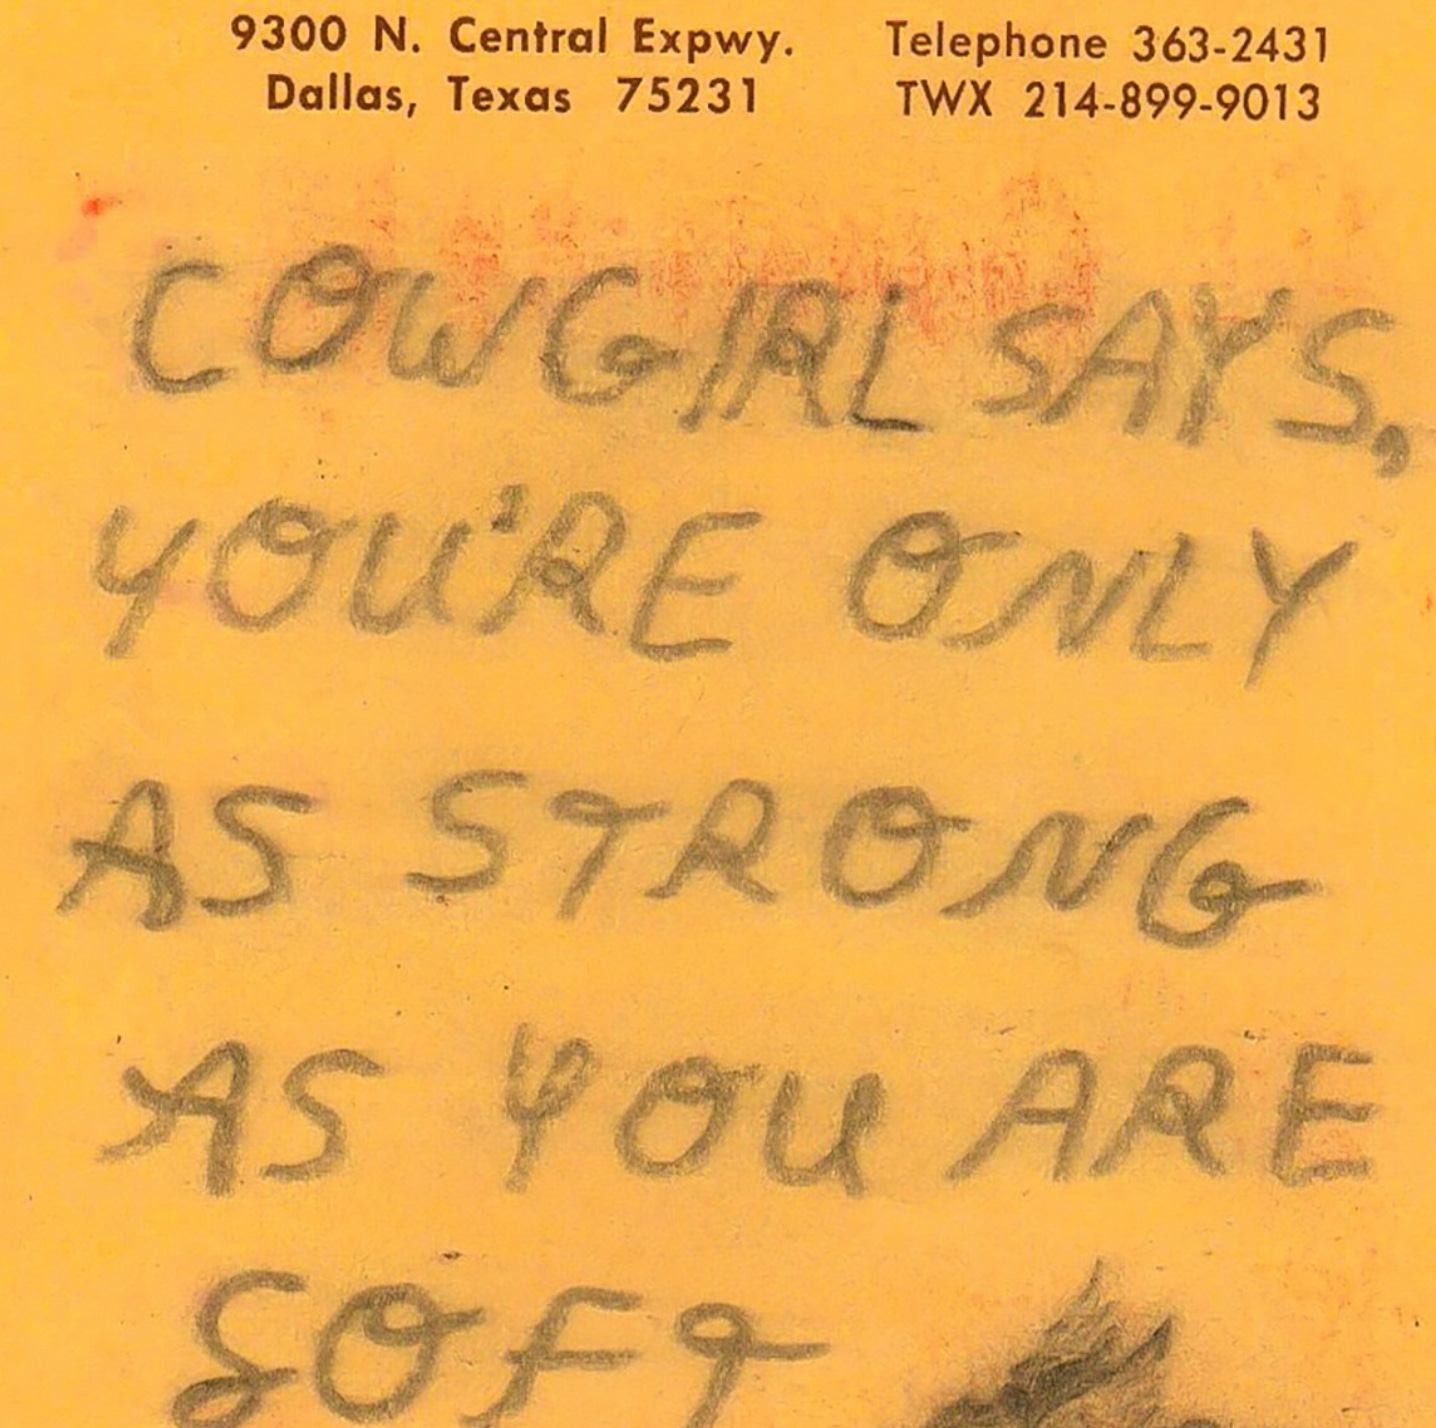 9300 N. Central Expwy. Telephone 363-2431
Dallas, Texas 75231 TWX 214-899-9013
COWGIRL SAYS,
YOU'RE ONLY
AS STRONG
AS YOU ARE
SOFT